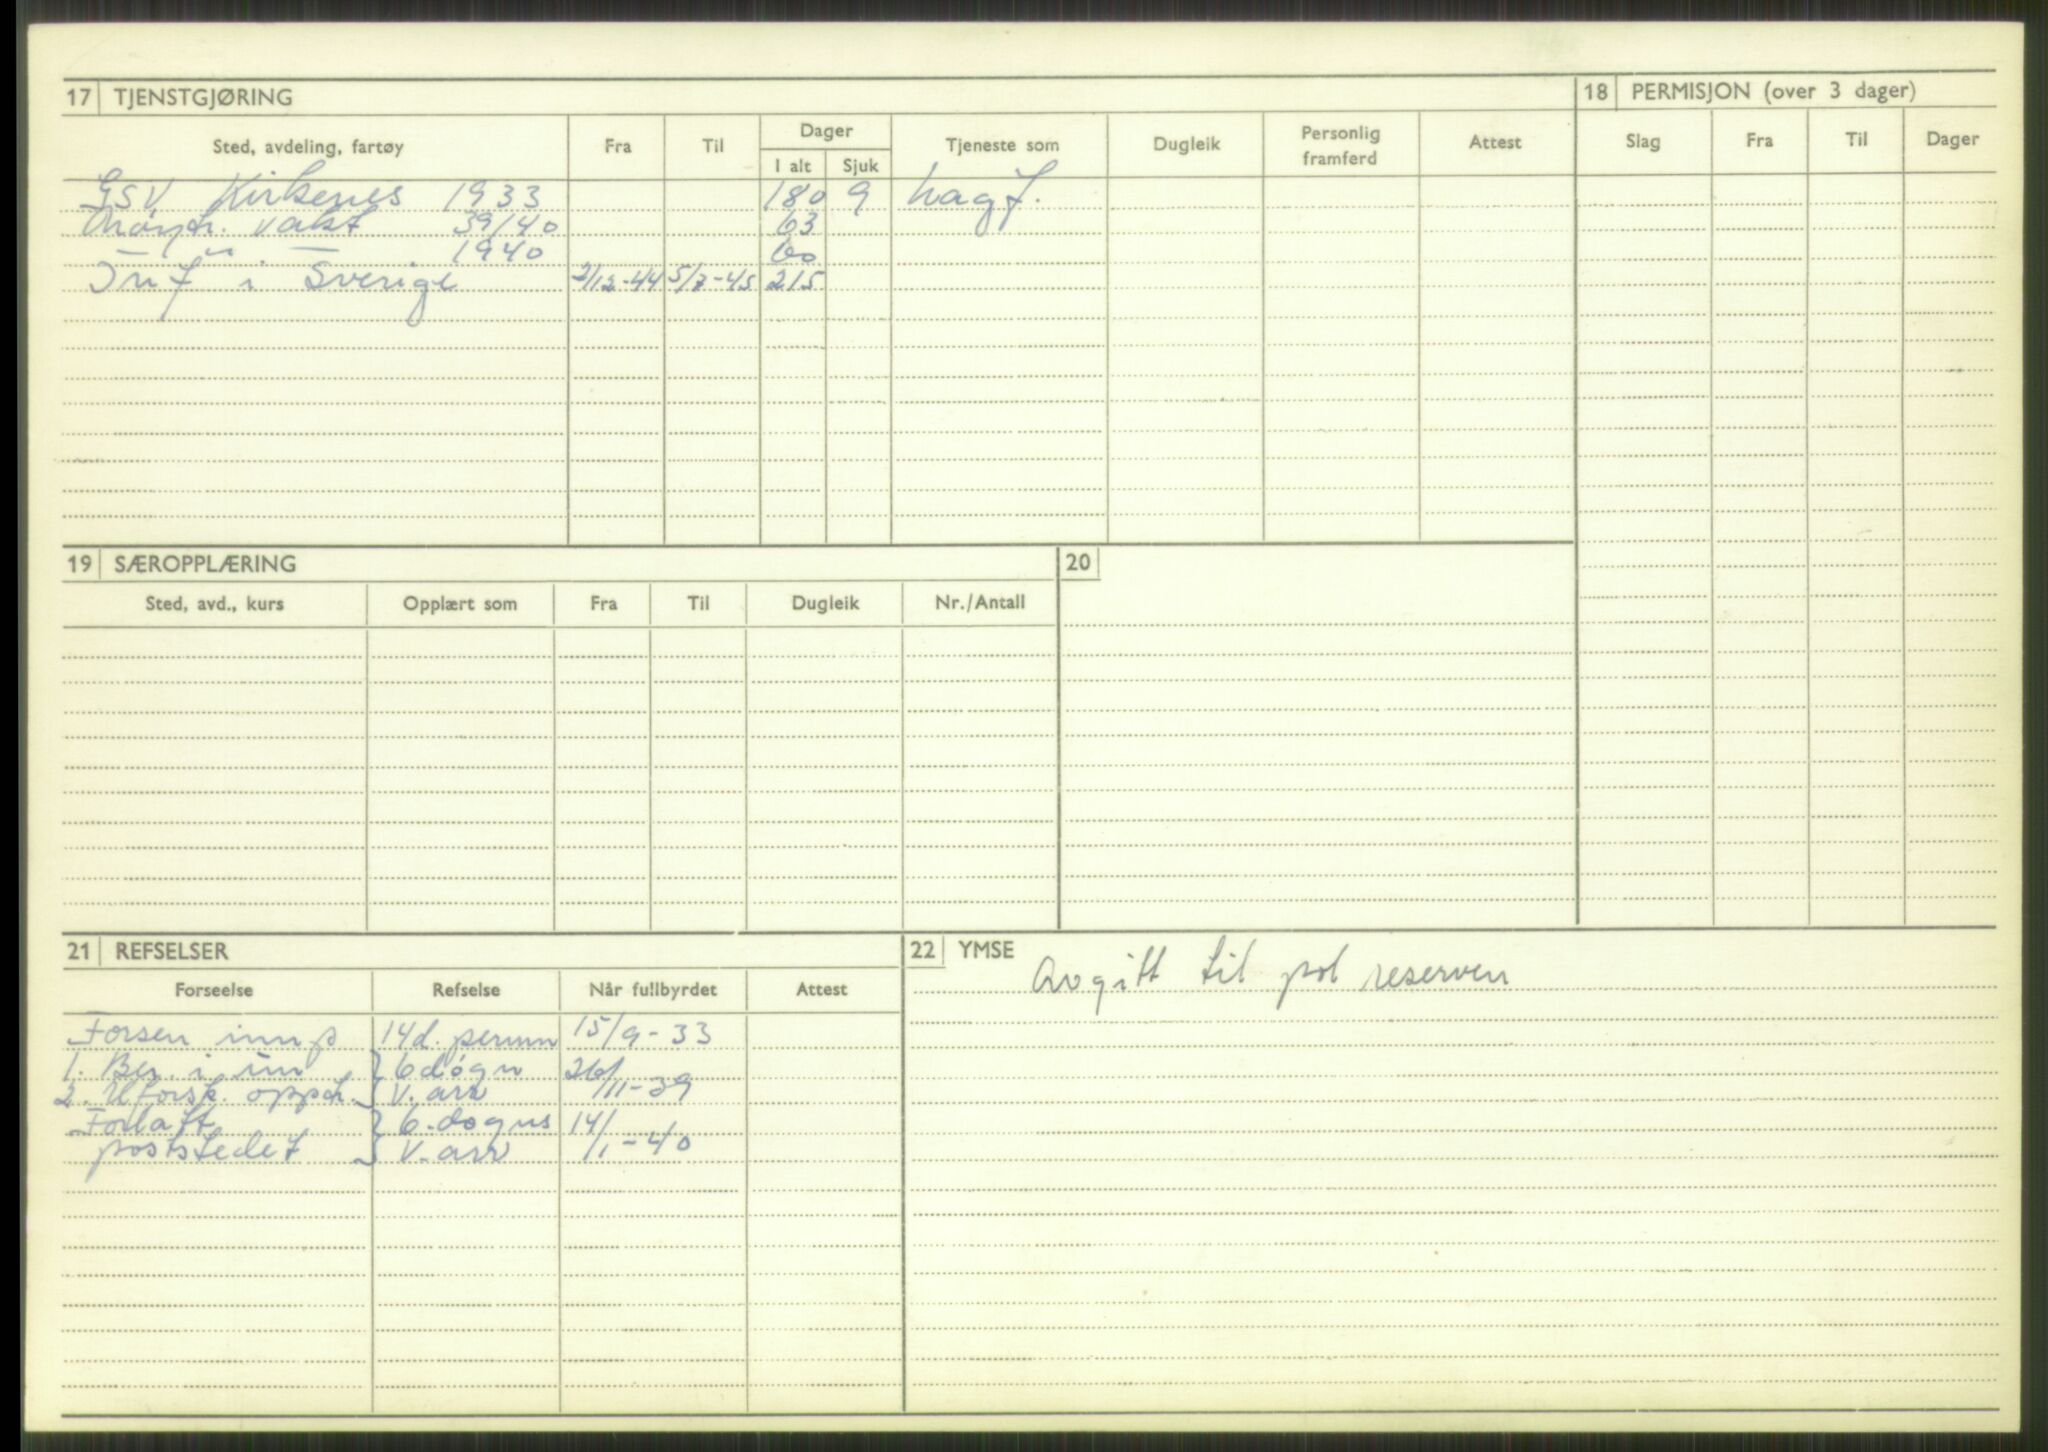 17 TJENSTGJØRING
Sted, avdeling, fartøy Fra Til Dager I alt Sjuk Tjeneste som Dugleik Personlig framferd Attest
GSV Kirkenes 1933 180 9 vagf.
Nøytr. vakt 39/40 63
— " — 1940 60
Inf i Sverige 2/12-44 5/7-45 215
18 PERMISJON (over 3 dager)
Slag Fra Til Dager
19 SÆROPPLÆRING
Sted, avd., kurs Opplært som Fra Til Dugleik Nr./Antall
20
21 REFSELSER
Forseelse Refselse Når fullbyrdet Attest
Forsen 14d. 15/9-33
1. Ber. i 6 døgn 26/
2. Uforsk. v. arr 11-39
Forlatt 6. døgns 14/
poststedet v. arr 1-40
22 YMSE
Avgitt til pol reserven